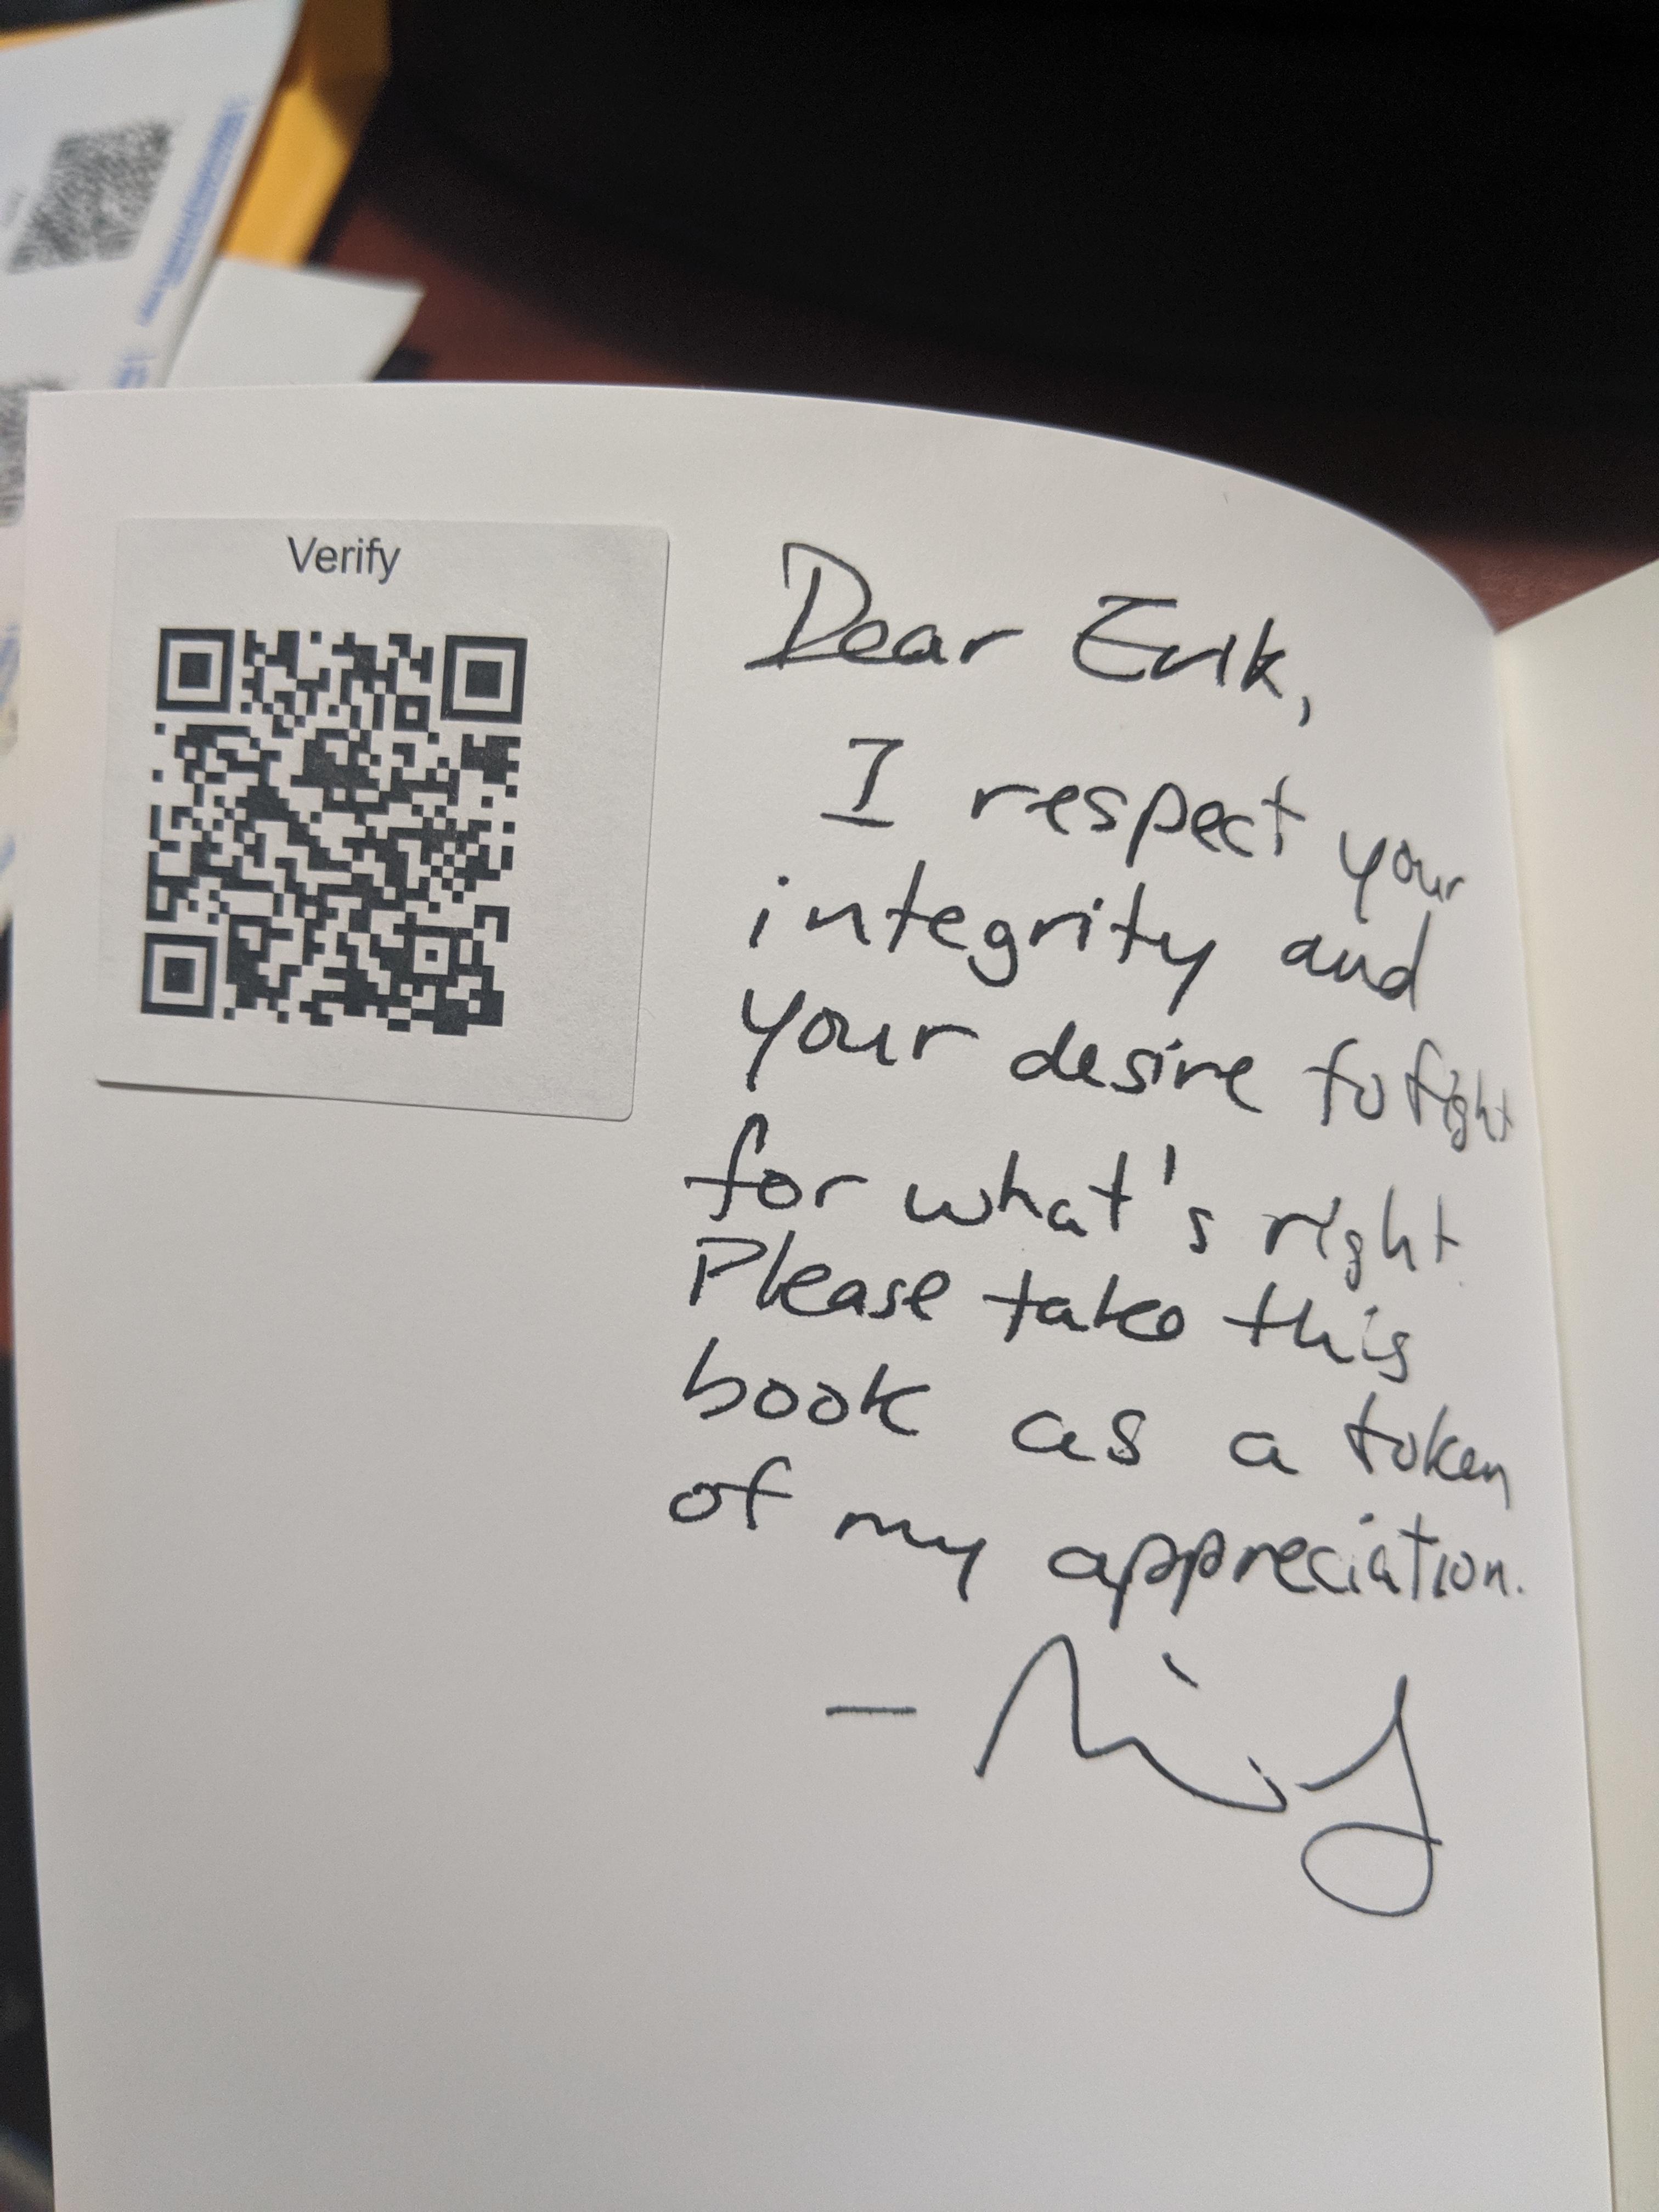 Verify
Dear Erik,
I respect your
integrity and
your desire to fight
for what's right.
Please take this
book as a token
of my appreciation.
—